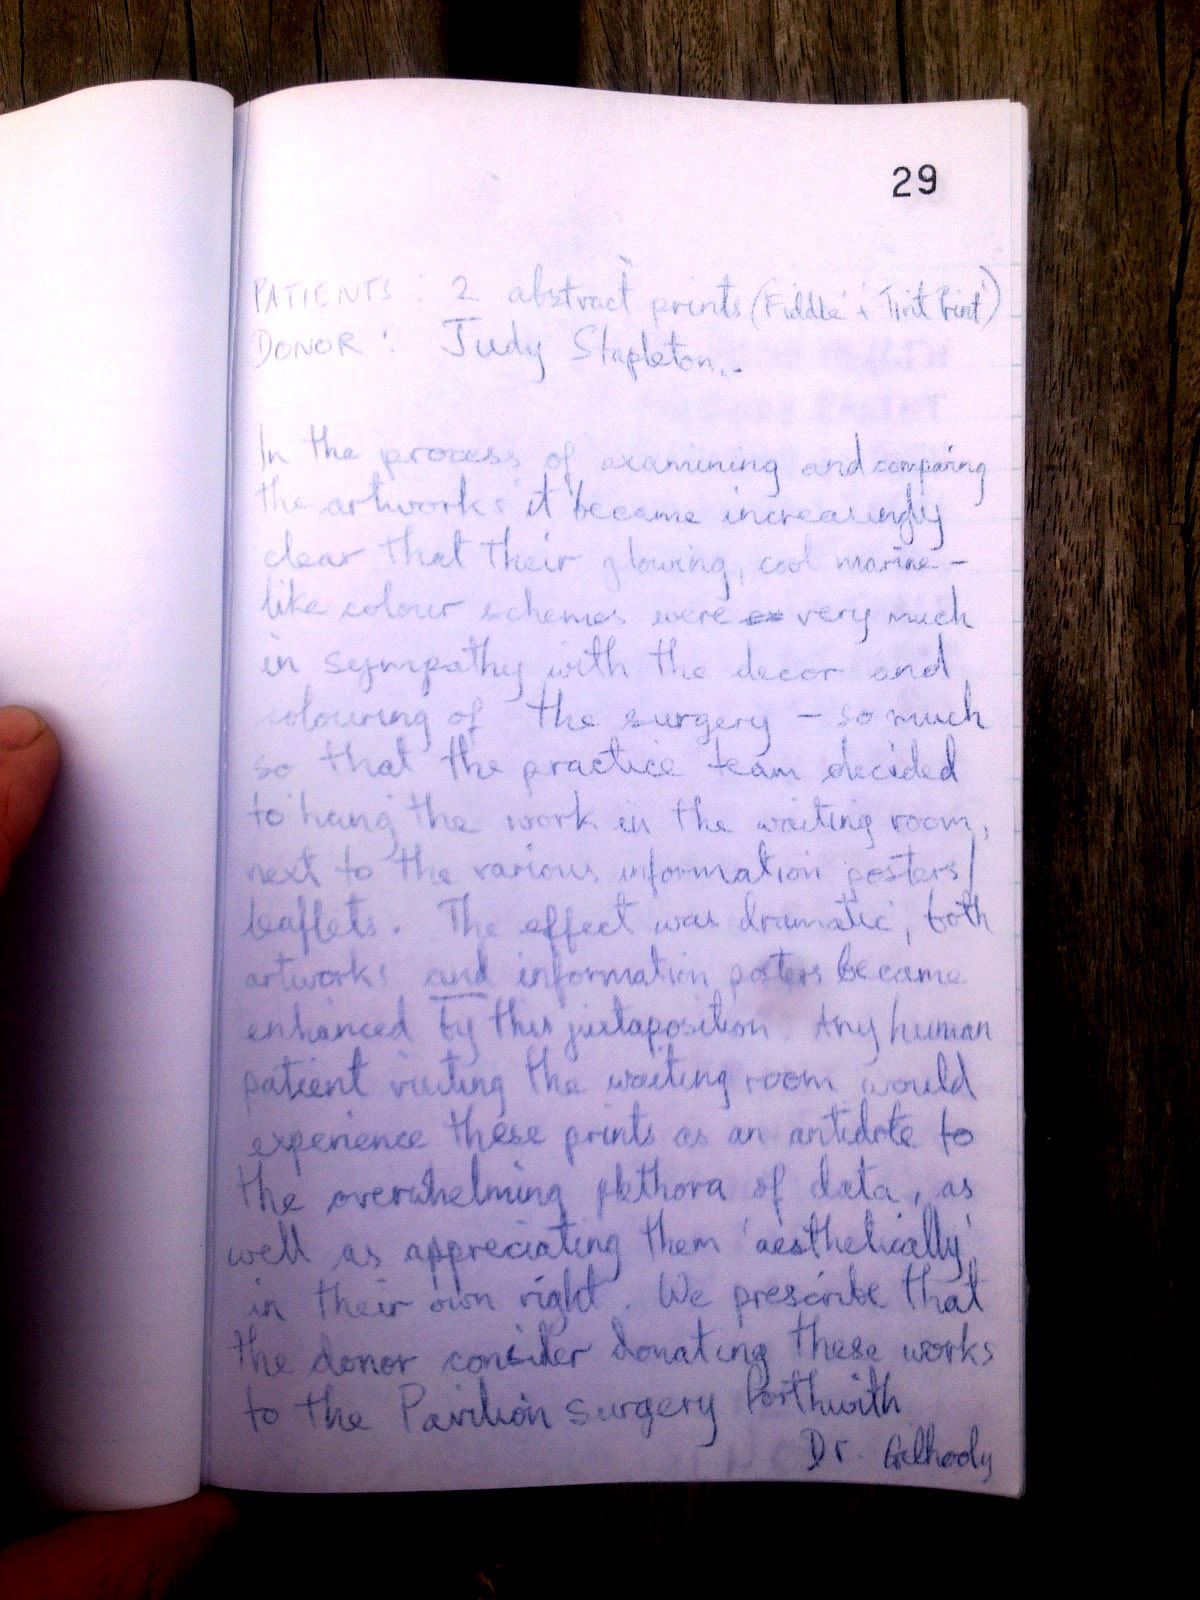 29
PATIENTS : 2 abstract prints (Fiddle' + Print')
DONOR : Judy Stapleton..
In the process of examining and comparing
the artworks it became increasingly
clear that their glowing, cool marine-
like colour schemes were very much
in sympathy with the decor and
colouring of the surgery – so much
so that the practice team decided
to hang the work in the waiting room,
next to the various information posters/
leaflets. The effect was dramatic, both
artworks and information posters became
enhanced by this juxtaposition. Any human
patient visiting the waiting room would
experience these prints as an antidote to
the overwhelming plethora of data, as
well as appreciating them 'aesthetically'
in their own right. We prescribe that
the donor consider donating these works
to the Pavilion surgery Porthwith
Dr.